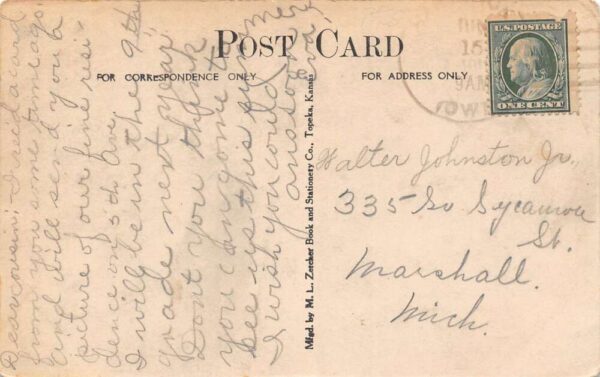 POST CARD
FOR CORRESPONDENCE ONLY
FOR ADDRESS ONLY
U.S. POSTAGE
ONE CENT
IOWA
Dear cousin; I rec'd a card
from you some time ago.
and will send you a
picture of our fine resi-
dence on 5th Ave.
I will be in the 9th
grade next year,
Don't you think
you can come to
see us this summer
I wish you could
Mfgd. by M. L. Zercher Book and Stationery Co., Topeka, Kansas
Walter Johnston Jr.,
335 So Sycamore
St.
Marshall.
Mich.